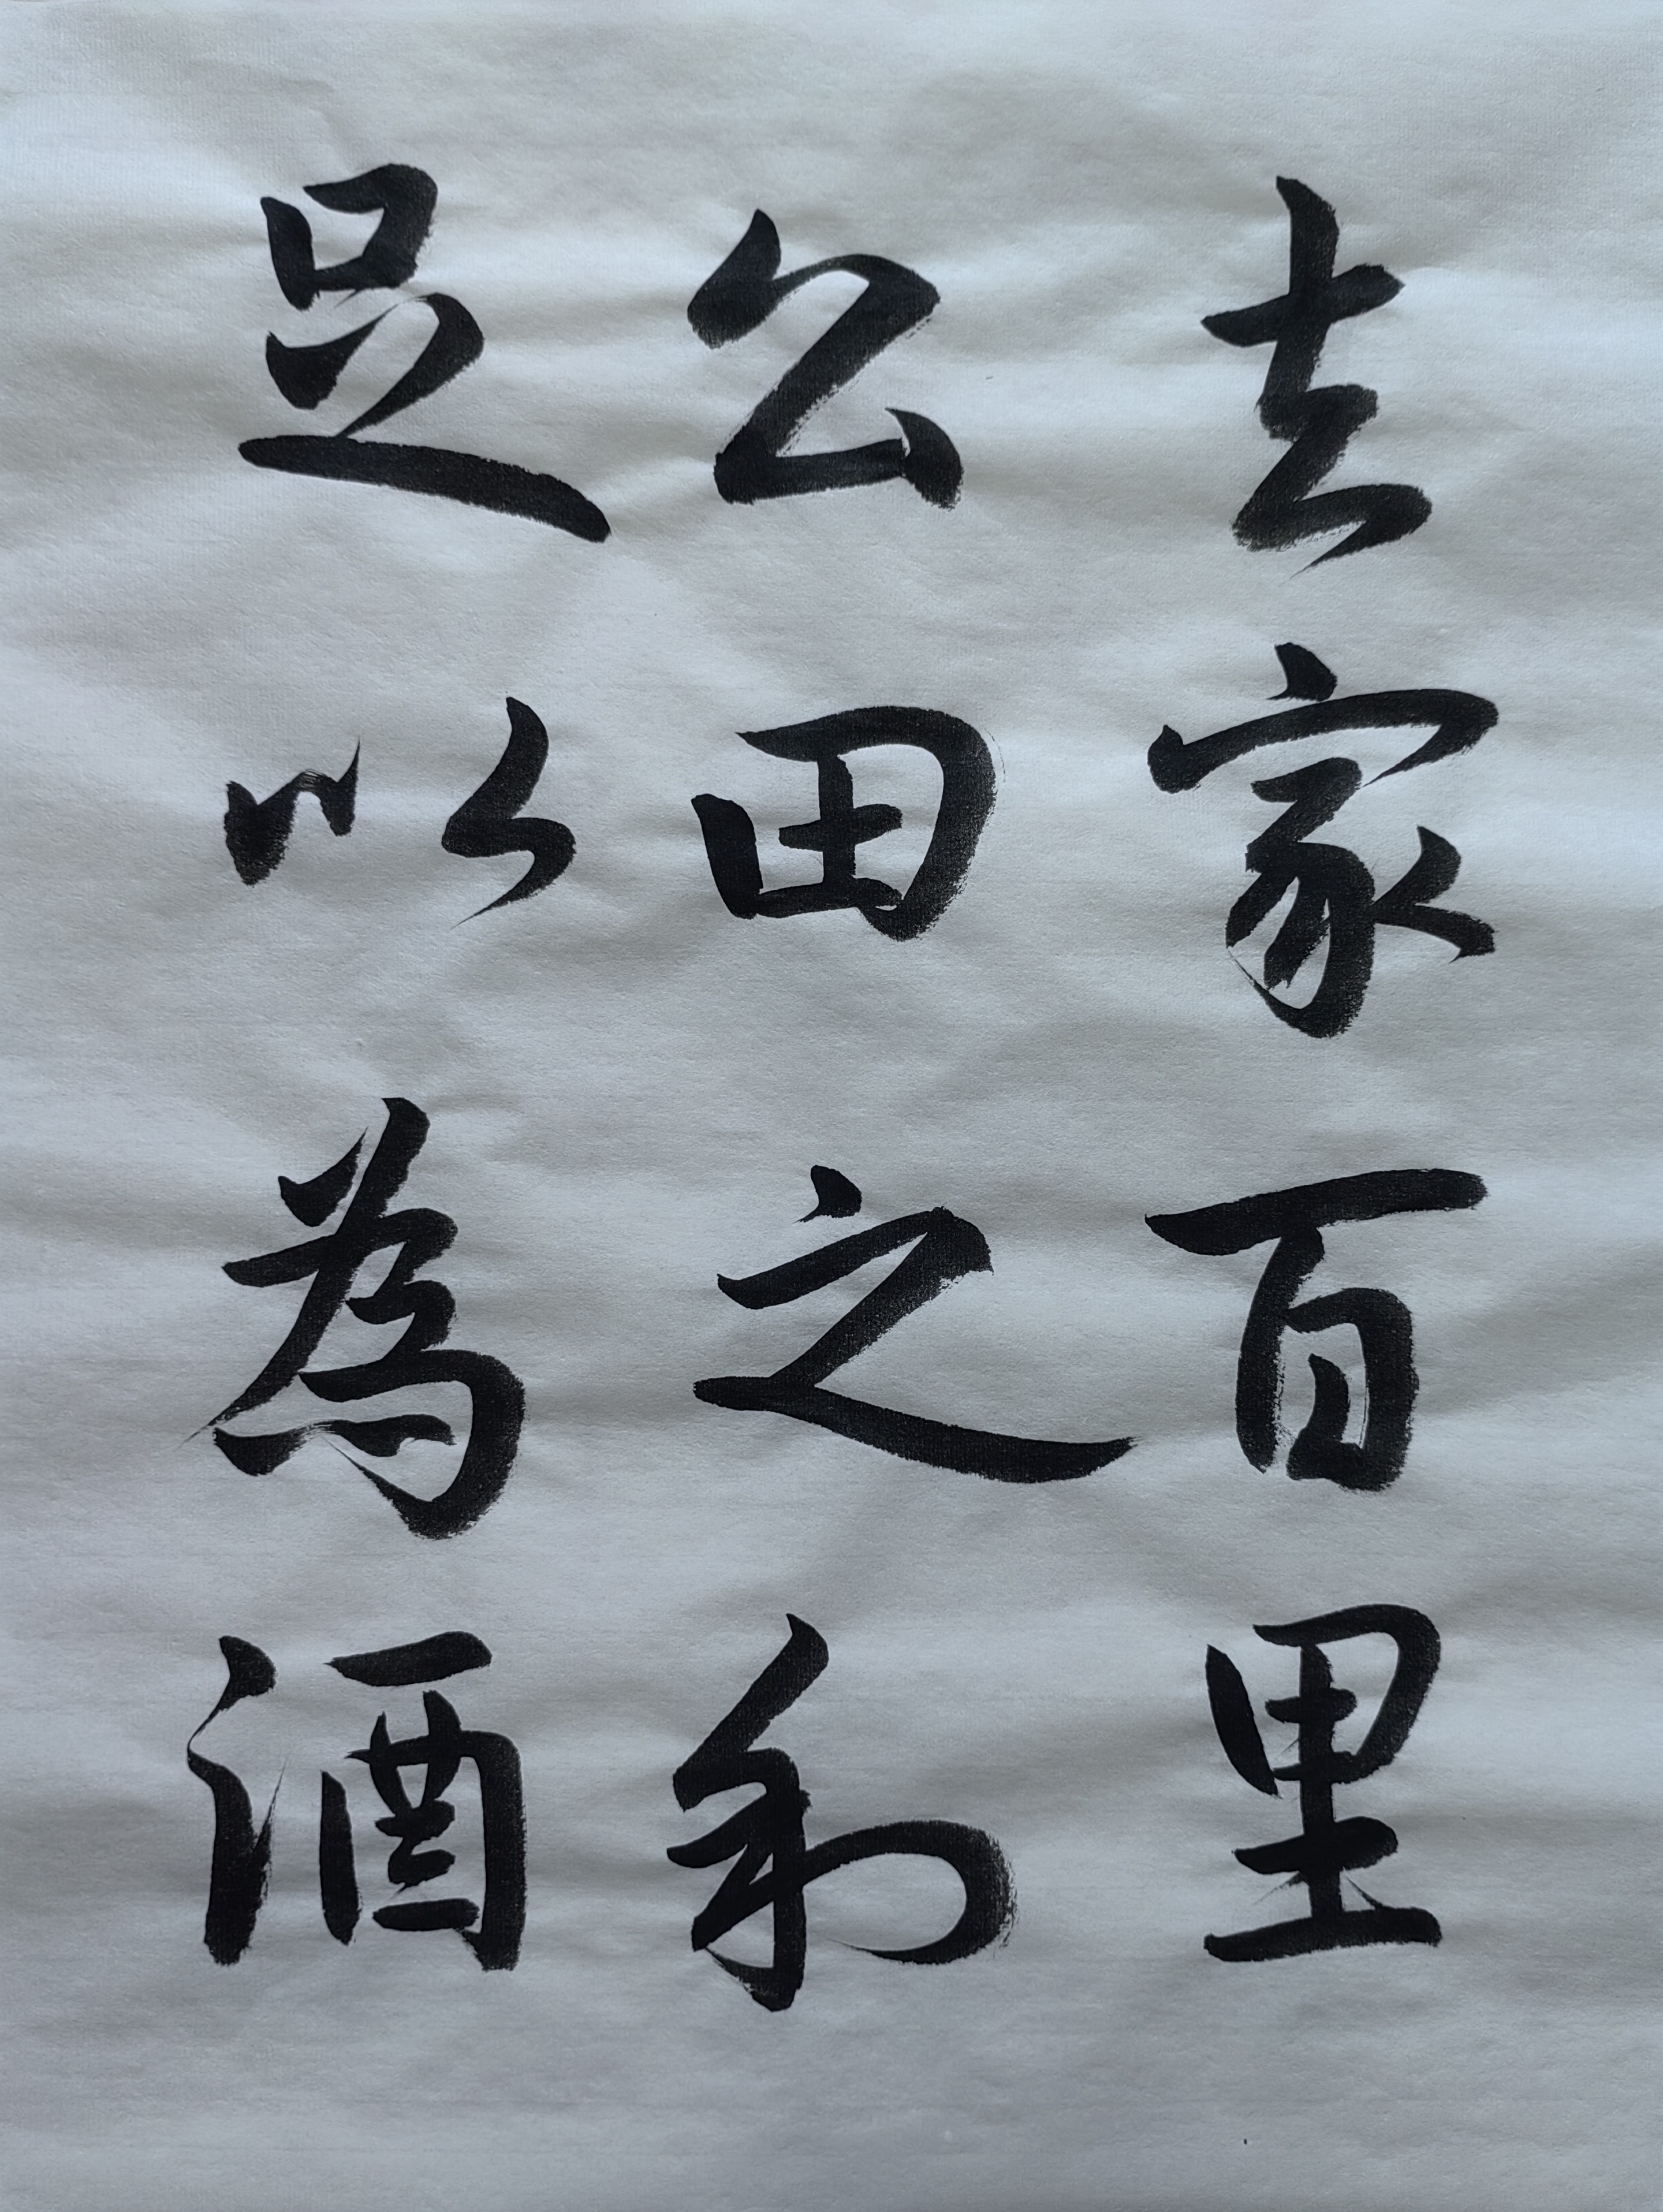 去家百里
公田之利
足以為酒